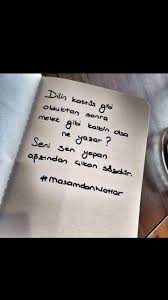 Dilin kaktüs gibi
olduktan sonra
melek gibi kalbin olsa
ne yazar?
Seni sen yapan
ağzından çıkan sözdür.
#MasamdanNotlar